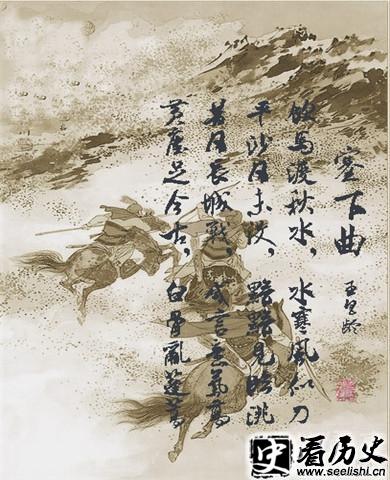 塞下曲
王昌龄
饮馬渡秋水,水寒風似刀
平沙日未没,黯黯見临洮
昔日長城戰,咸言意氣高
黄塵足今古,白骨亂蓬蒿
史看历史
www.seelishi.cn